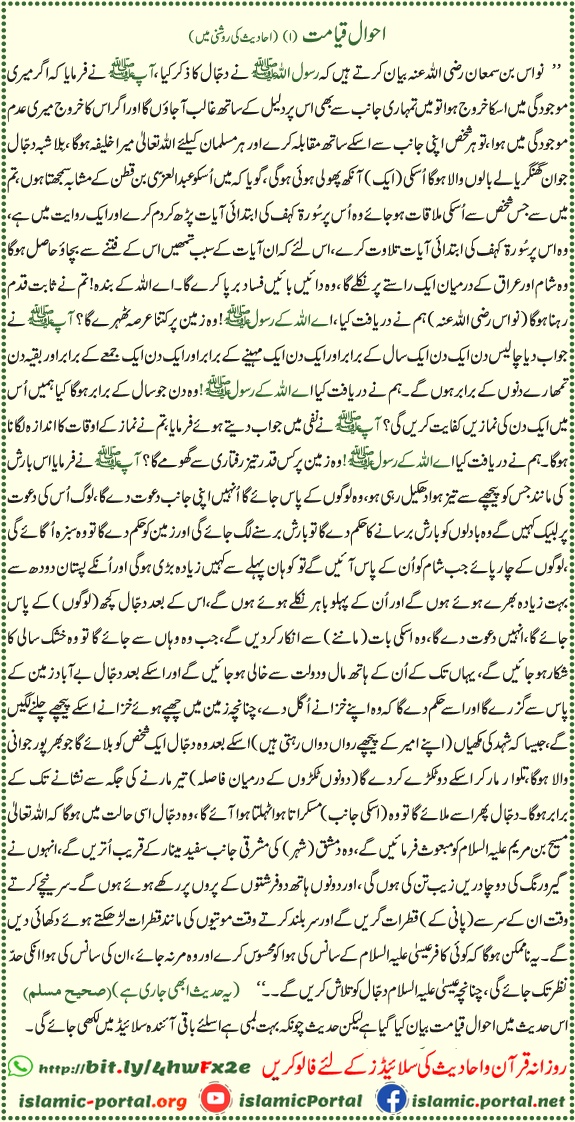 احوال قیامت (۱) (احادیث کی روشنی میں)
’’ نواس بن سمعان رضی اللہ عنہ بیان کرتے ہیں کہ رسول اللہ ﷺ نے دجّال کا ذکر کیا، آپ ﷺ نے فرمایا کہ اگر میری
موجودگی میں اسکا خروج ہوا تو میں تمہاری جانب سے بھی اس پر دلیل کے ساتھ غالب آجاؤں گا اور اگر اس کا خروج میری عدم
موجودگی میں ہوا، تو ہر شخص اپنی جانب سے اسکے ساتھ مقابلہ کرے اور ہر مسلمان کیلئے اللہ تعالیٰ میرا خلیفہ ہوگا، بلا شبہ دجّال
جوان گھنگریالے بالوں والا ہوگا اُسکی (ایک) آنکھ پھولی ہوئی ہوگی، گویا کہ میں اُسکو عبدالعزی بن قطن کے مشابہ سمجھتا ہوں، تم
میں سے جس شخص سے اُسکی ملاقات ہو جائے وہ اُس پر سُورۃ کہف کی ابتدائی آیات پڑھ کر دم کرے اور ایک روایت میں ہے،
وہ اس پر سُورۃ کہف کی ابتدائی آیات تلاوت کرے، اس لئے کہ ان آیات کے سبب تمھیں اس کے فتنے سے بچاؤ حاصل ہوگا
وہ شام اور عراق کے درمیان ایک راستے پر نکلے گا، وہ دائیں بائیں فساد برپا کرے گا۔ اے اللہ کے بندہ! تم نے ثابت قدم
رہنا ہوگا (نواس رضی اللہ عنہ) ہم نے دریافت کیا، اے اللہ کے رسول ﷺ! وہ زمین پر کتنا عرصہ ٹھہرے گا؟ آپ ﷺ نے
جواب دیا چالیس دن ایک دن ایک سال کے برابر اور ایک دن ایک مہینے کے برابر اور ایک دن ایک جمعے کے برابر اور بقیہ دن
تمھارے دنوں کے برابر ہوں گے۔ ہم نے دریافت کیا اے اللہ کے رسول ﷺ! وہ دن جو سال کے برابر ہوگا کیا ہمیں اُس
میں ایک دن کی نمازیں کفایت کریں گی؟ آپ ﷺ نے نفی میں جواب دیتے ہوئے فرمایا، تم نے نماز کے اوقات کا اندازہ لگانا
ہوگا۔ ہم نے دریافت کیا اے اللہ کے رسول ﷺ! وہ زمین پر کس قدر تیز رفتاری سے گھومے گا؟ آپ ﷺ نے فرمایا اس بارش
کی مانند جس کو پیچھے سے تیز ہوا دھکیل رہی ہو، وہ لوگوں کے پاس جائے گا اُنہیں اپنی جانب دعوت دے گا، لوگ اُس کی دعوت
پر لبیک کہیں گے وہ بادلوں کو بارش برسانے کا حکم دے گا تو بارش برسنے لگ جائے گی اور زمین کو حکم دے گا تو وہ سبزہ اُگائے گی
،لوگوں کے چارپائے جب شام کو اُن کے پاس آئیں گے تو کوہان پہلے سے کہیں زیادہ بڑی ہوگی اور اُنکے پستان دودھ سے
بہت زیادہ بھرے ہوئے ہوں گے اور اُن کے پہلو باہر نکلے ہوئے ہوں گے، اس کے بعد دجّال کچھ (لوگوں) کے پاس
جائے گا، انہیں دعوت دے گا، وہ اسکی بات (ماننے) سے انکار کردیں گے، جب وہ وہاں سے جائے گا تو وہ خشک سالی کا
شکار ہو جائیں گے، یہاں تک کے اُن کے ہاتھ مال و دولت سے خالی ہو جائیں گے اور اسکے بعد دجّال بے آباد زمین کے
پاس سے گزرے گا اور اسے حکم دے گا کہ وہ اپنے خزانے اُگل دے، چنانچہ زمین میں چھپے ہوئے خزانے اسکے پیچھے چلنے لگیں
گے، جیسا کہ شہد کی مکھیاں (اپنے امیر کے پیچھے رواں دواں رہتی ہیں) اسکے بعد وہ دجّال ایک شخص کو بلائے گا جو بھرپور جوانی
والا ہوگا، تلوار مار کر اسکے دو ٹکڑے کردے گا (دونوں ٹکڑوں کے درمیان فاصلہ) تیر مارنے کی جگہ سے نشانے تک کے
برابر ہوگا۔ دجّال پھر اسے ملائے گا تو وہ (اسکی جانب) مسکراتا ہوا ٹہلتا ہوا آئے گا، وہ دجّال اسی حالت میں ہوگا کہ اللہ تعالیٰ
مسیح بن مریم علیہ السلام کو مبعوث فرمائیں گے، وہ دمشق (شہر) کی مشرقی جانب سفید مینار کے قریب اُتریں گے، انہوں نے
گیرو رنگ کی دو چادریں زیب تن کی ہوں گی، اور دونوں ہاتھ دو فرشتوں کے پروں پر رکھے ہوئے ہوں گے۔ سر نیچے کرتے
وقت ان کے سر سے (پانی کے) قطرات گریں گے اور سر بلند کرتے وقت موتیوں کی مانند قطرات لڑھکتے ہوئے دکھائی دیں
گے۔ یہ ناممکن ہوگا کہ کوئی کافر عیسیٰ علیہ السلام کے سانس کی ہوا کو محسوس کرے اور وہ مر نہ جائے، ان کی سانس کی ہوا انکی حدّ
نظر تک جائے گی، چنانچہ عیسیٰ علیہ السلام دجّال کو تلاش کریں گے۔۔‘‘ (یہ حدیث ابھی جاری ہے) (صحیح مسلم)
اس حدیث میں احوال قیامت بیان کیا گیا ہے لیکن حدیث چونکہ بہت لمبی ہے اسلئے باقی آئندہ سلائیڈ میں لکھی جائے گی۔
روزانہ قرآن و احادیث کی سلائیڈز کے لئے فالو کریں http://bit.ly/4hwFx2e
islamic-portal.org islamicPortal islamic.portal.net